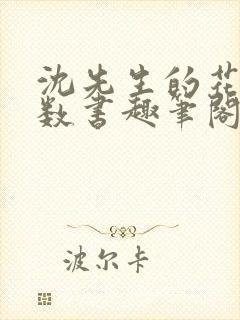 沈先生的花
数书趣笔阁
波尔卡